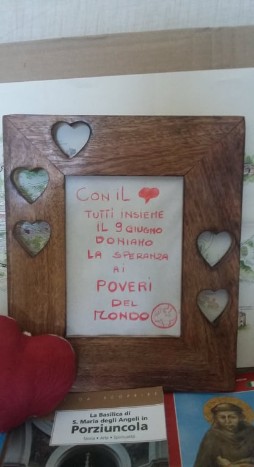 CON IL
TUTTI INSIEME
IL 9 GIUGNO
DONIAMO
LA SPERANZA
AI
POVERI
DEL
MONDO
La Basilica di
S. Maria degli Angeli in
Porziuncola
Storia • Arte • Spiritualità